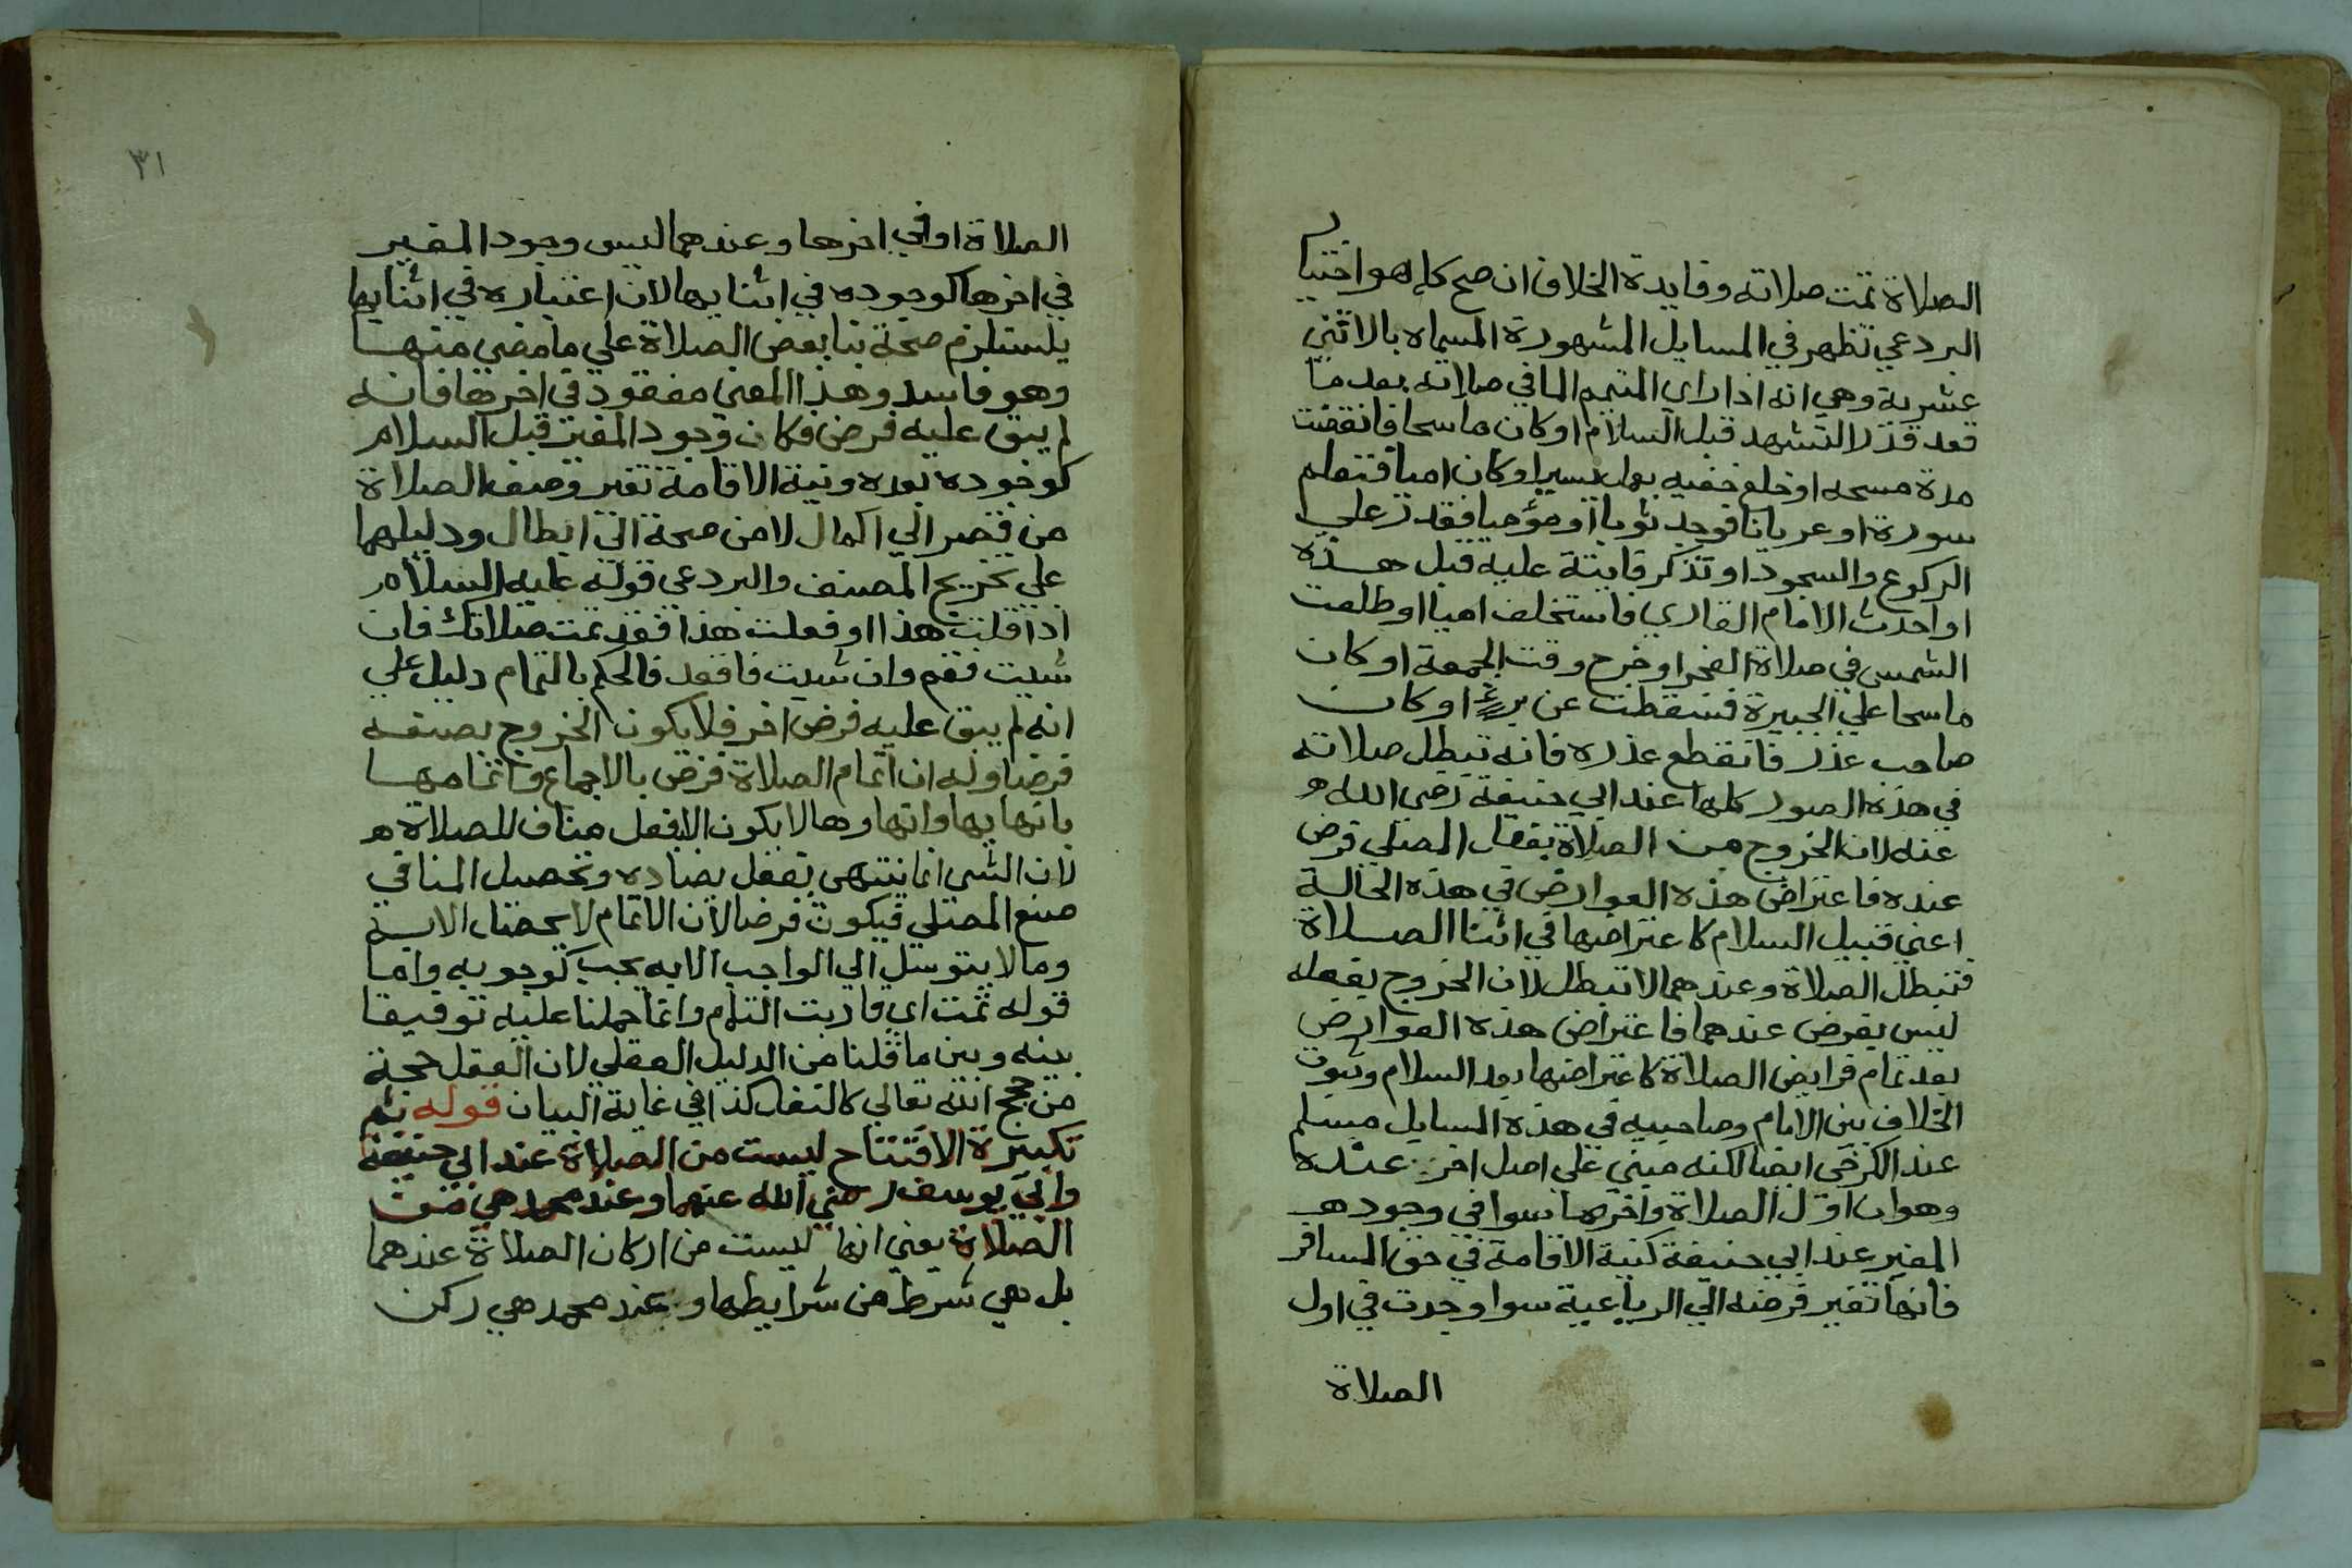 الصلاة تمت صلاته وفايدة الخلاف ان صح كما هو اختيار
البردعي تظهر في المسايل المشهورة المسماه بالاثني
عشرية وهي انه اذا راي المتيمم الما في صلاته بعد ما
قعد قدر التشهد قبل السلام او كان ماسحا فانقضت
مدة مسحه او خلع خفيه بعمل يسير او كان اميا فتعلم
سورة او عريانا فوجد ثوبا او موميا فقدر علي
الركوع والسجود او تذكر فايتة عليه قبل هذه
او احدث الامام القاري فاستخلف اميا او طلعت
الشمس في صلاة الفجر او خرج وقت الجمعة او كان
ماسحا علي الجبيرة فسقطت عن برء او كان
صاحب عذر فانقطع عذره فانه تبطل صلاته
في هذه الصور كلها عند ابي حنيفة رضي الله
عنه لان الخروج من الصلاة بفعل المصلي فرض
عنده فاعتراض هذه العوارض في هذه الحالة
اعني قبيل السلام كاعتراضها في اثنا الصلاة
فتبطل الصلاة وعندهما لا تبطل لان الخروج بفعله
ليس بفرض عندهما فاعتراض هذه العوارض
بعد تمام فرايض الصلاة كاعتراضها بعد السلام وثبوت
الخلاف بين الامام وصاحبيه في هذه المسايل مسلم
عند الكرخي ايضا لكنه مبني علي اصل اخر عنده
وهو ان اول الصلاة واخرها سوا في وجود
المغير عند ابي حنيفة كنية الاقامة في حق المسافر
فانها تغير فرضه الي الرباعية سوا وجدت في اول
الصلاة
٣١
الصلاة او في اخرها وعندهما ليس وجود المغير
في اخرها كوجوده في اثنايها لان اعتباره في اثنايها
يستلزم صحة بنا بعض الصلاة علي ما مضي منها
وهو فاسد وهذا المعني مفقود في اخرها فانه
لم يبق عليه فرض فكان وجود المغير قبل السلام
كوجوده بعده ونية الاقامة تغير وصف الصلاة
من قصر الي اكمال لا من صحة الي ابطال ودليلهما
علي تخريج المصنف والبردعي قوله عليه السلام
اذا قلت هذا او فعلت هذا فقد تمت صلاتك فان
شيت فقم وان شيت فاقعد فالحكم بالتمام دليل علي
انه لم يبق عليه فرض اخر فلا يكون الخروج بصنعه
فرضا وله ان اتمام الصلاة فرض بالاجماع واتمامها
بانهايها وانهاوها لا يكون الا بفعل مناف للصلاة
لان الشي انما ينتهي بفعل يضاده وتحصيل المنافي
صنع المصلي فيكون فرضا لان الاتمام لا يحصل الا به
وما لا يتوسل الي الواجب الا به يجب كوجوبه واما
قوله تمت اي قاربت التمام وانما حملنا عليه توفيقا
بينه وبين ما قلنا من الدليل العقلي لان العقل حجة
من حجج الله تعالي كالنقل كذا في غاية البيان قوله ثم
تكبيرة الافتتاح ليست من الصلاة عند ابي حنيفة
وابي يوسف رضي الله عنهما وعند محمد هي من
الصلاة يعني انها ليست من اركان الصلاة عندهما
بل هي شرط من شرايطها وعند محمد هي ركن